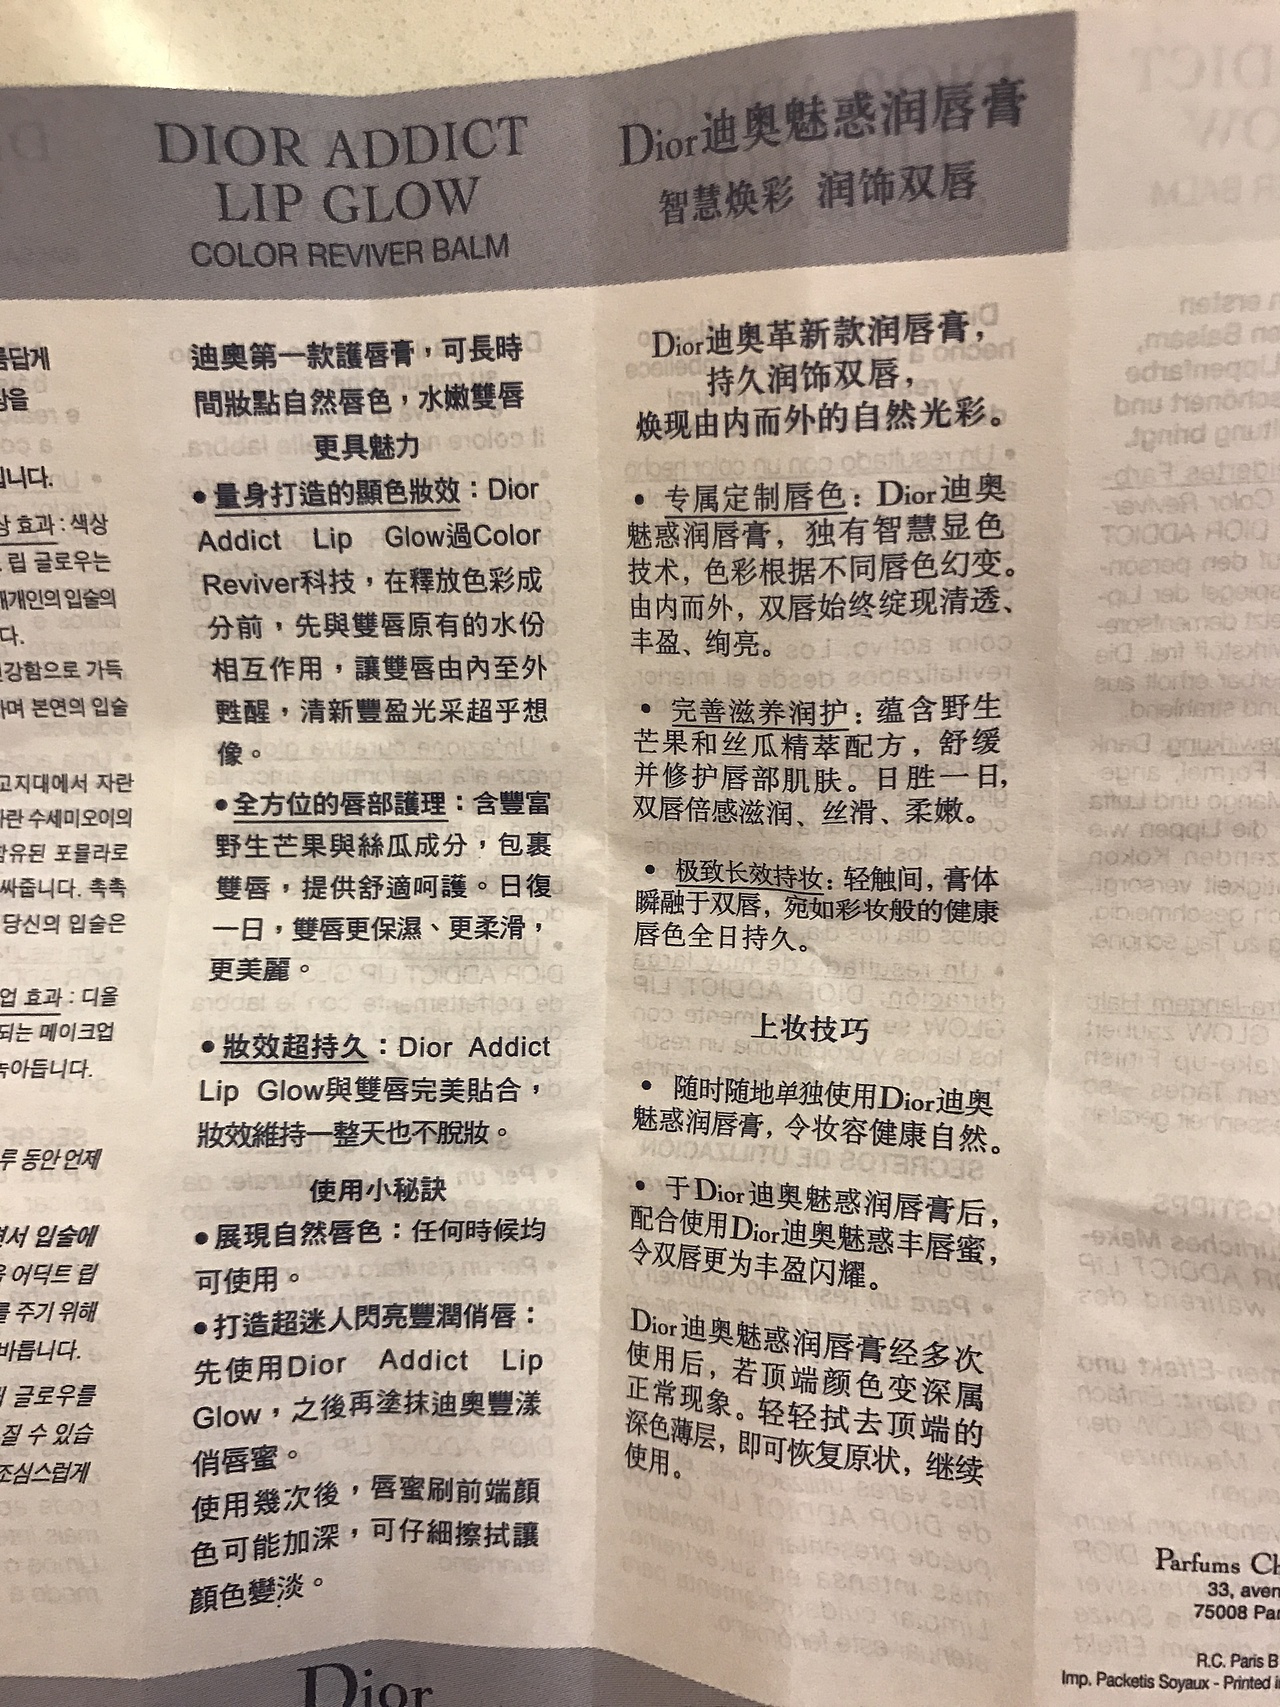 DIOR ADDICT
LIP GLOW
COLOR REVIVER BALM
迪奧第一款護唇膏，可長時
間妝點自然唇色，水嫩雙唇
更具魅力
●量身打造的顯色妝效：Dior
Addict Lip Glow過Color
Reviver科技，在釋放色彩成
分前，先與雙唇原有的水份
相互作用，讓雙唇由內至外
甦醒，清新豐盈光采超乎想
像。
●全方位的唇部護理：含豐富
野生芒果與絲瓜成分，包裹
雙唇，提供舒適呵護。日復
一日，雙唇更保濕、更柔滑，
更美麗。
●妝效超持久：Dior Addict
Lip Glow與雙唇完美貼合，
妝效維持一整天也不脫妝。
使用小秘訣
●展現自然唇色：任何時候均
可使用。
●打造超迷人閃亮豐潤俏唇：
先使用Dior Addict Lip
Glow，之後再塗抹迪奧豐漾
俏唇蜜。
使用幾次後，唇蜜刷前端顏
色可能加深，可仔細擦拭讓
顏色變淡。
Dior
Dior迪奥魅惑润唇膏
智慧焕彩 润饰双唇
Dior迪奥革新款润唇膏，
持久润饰双唇，
焕现由内而外的自然光彩。
• 专属定制唇色：Dior迪奥
魅惑润唇膏，独有智慧显色
技术，色彩根据不同唇色幻变。
由内而外，双唇始终绽现清透、
丰盈、绚亮。
• 完善滋养润护：蕴含野生
芒果和丝瓜精萃配方，舒缓
并修护唇部肌肤。日胜一日，
双唇倍感滋润、丝滑、柔嫩。
• 极致长效持妆：轻触间，膏体
瞬融于双唇，宛如彩妆般的健康
唇色全日持久。
上妆技巧
• 随时随地单独使用Dior迪奥
魅惑润唇膏，令妆容健康自然。
• 于Dior迪奥魅惑润唇膏后，
配合使用Dior迪奥魅惑丰唇蜜，
令双唇更为丰盈闪耀。
Dior迪奥魅惑润唇膏经多次
使用后，若顶端颜色变深属
正常现象。轻轻拭去顶端的
深色薄层，即可恢复原状，继续
使用。
름답게
니다.
상 효과 : 색상
립 글로우는
개개인의 입술의
다.
건강함으로 가득
하며 본연의 입술
고지대에서 자란
자란 수세미오이의
함유된 포뮬라로
싸줍니다. 촉촉
당신의 입술은
업 효과 : 디올
되는 메이크업
녹아듭니다.
루 동안 언제
면서 입술에
어딕트 립
를 주기 위해
바릅니다.
글로우를
질 수 있습
조심스럽게
Parfums Ch
33, aven
75008 Par
R.C. Paris B
Imp. Packetis Soyaux - Printed in